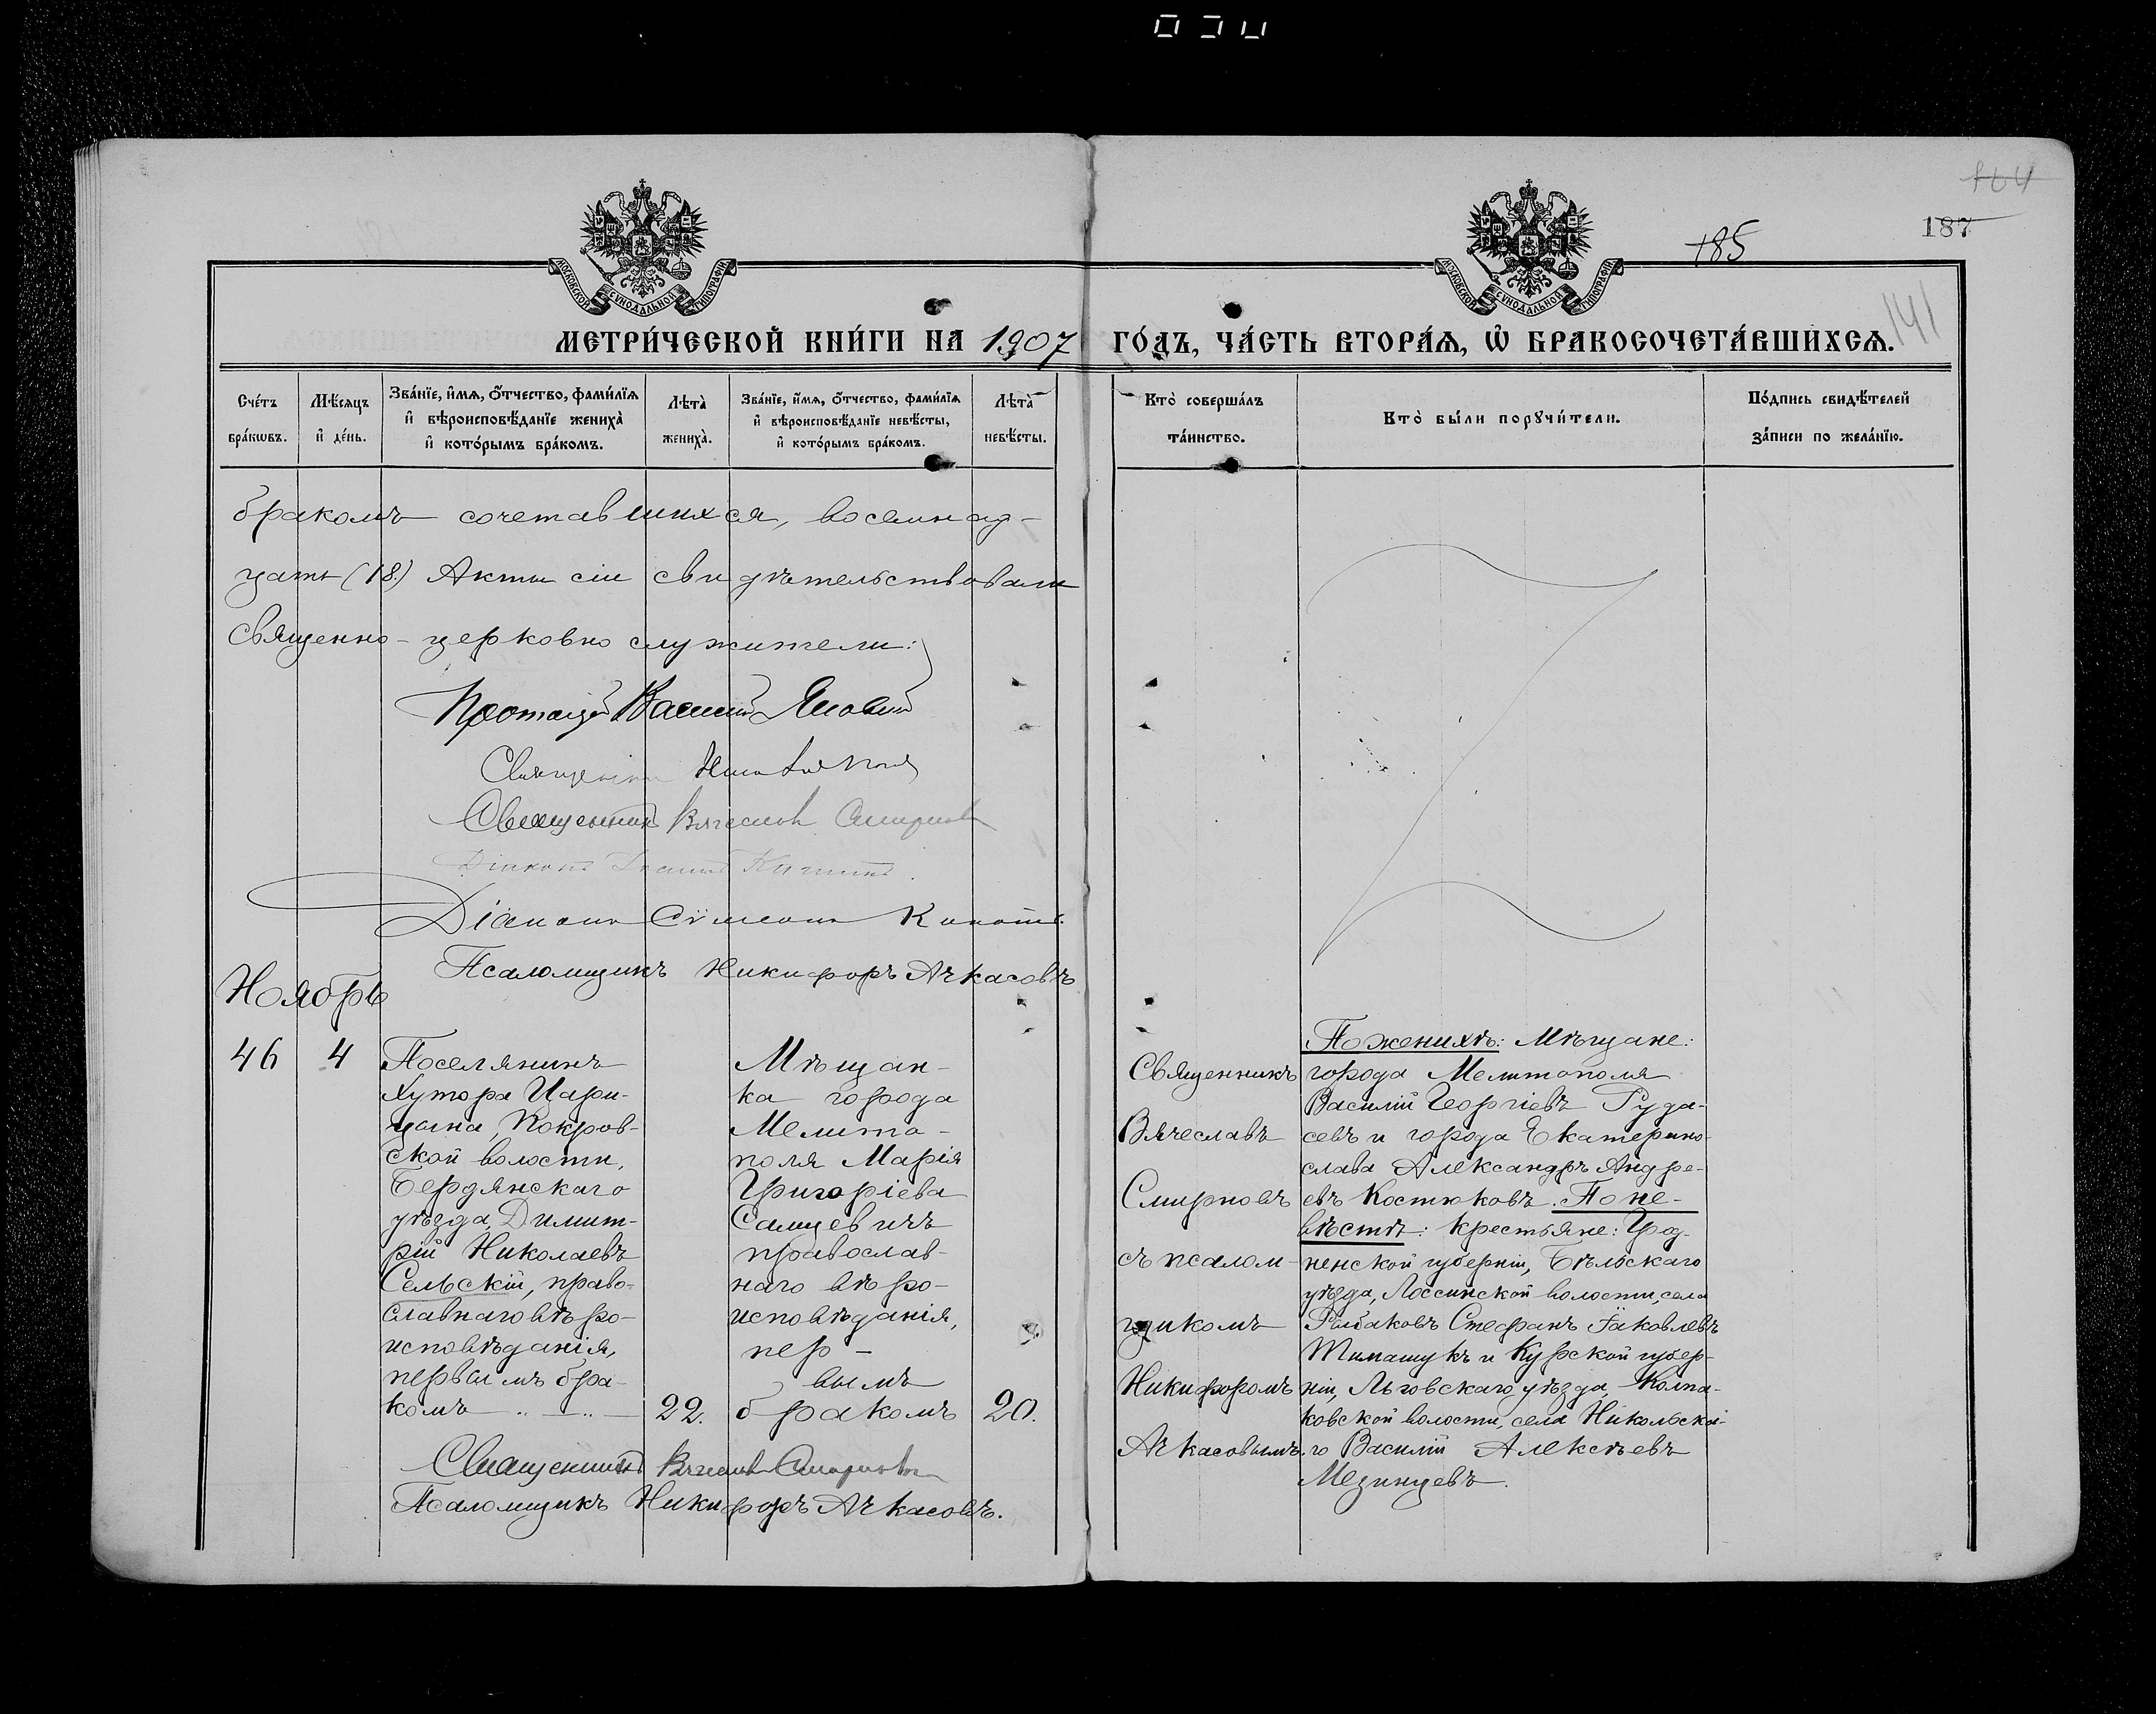 164
187
185
141
МОСКОВСКОЙ СѴНОДАЛЬНОЙ ТИПОГРАФІИ
МОСКОВСКОЙ СѴНОДАЛЬНОЙ ТИПОГРАФІИ
МЕТРИ́ЧЕСКОЙ КНИ́ГИ НА 1907 ГО́ДЪ, ЧА́СТЬ ВТОРА́Ѧ, Ѡ҆ БРАКОСОЧЕТА́ВШИХСѦ.
Сче́тъ бра́кѡвъ.
Мѣ́сѧцъ и҆ де́нь.
Зва́нїе, и҆́мѧ, ѻ҆́тчество, фами́лїѧ и҆ вѣроисповѣ́данїе жениха̀ и҆ кото́рымъ бра́комъ.
Лѣта̀ жениха̀.
Зва́нїе, и҆́мѧ, ѻ҆́тчество, фами́лїѧ и҆ вѣроисповѣ́данїе невѣ́сты, и҆ кото́рымъ бра́комъ.
Лѣта̀ невѣ́сты.
Кто̀ соверша́лъ та́инство.
Кто̀ бы́ли порꙋчи́тели.
По́дпись свидѣ́телей за́писи по жела́нїю.
бракомъ сочетавшихся, восемнад-
цать (18.) Акты сіи свидѣтельствовали
Священно-церковно служители:
Протоіерей Василій
Священникъ
Священникъ Вячеславъ Смирновъ
Діаконъ Іоаннъ
Діаконъ Сѵмеонъ
Псаломщикъ Никифоръ Ачкасовъ
Ноябрь
46 4
Поселянинъ
хутора Цари-
цына, Покров-
ской волости,
Бердянскаго
уѣзда, Димит-
рій Николаевъ
Сельскій, право-
славнаго вѣро-
исповѣданія,
первымъ бра-
комъ
22.
Мѣщан-
ка города
Мелито-
поля Марія
Григоріева
Самцевичъ
православ-
наго вѣро-
исповѣданія,
пер-
вымъ
бракомъ
20.
Священникъ Вячеславъ Смирновъ
Псаломщикъ Никифоръ Ачкасовъ.
Священникъ
Вячеславъ
Смирновъ
съ псалом-
щикомъ
Никифоромъ
Ачкасовымъ.
По женихѣ: Мѣщане:
города Мелитополя
Василій Георгіевъ Руда-
севъ и города Екатерино-
слава Александръ Андре-
евъ Костюковъ. По не-
вѣстѣ: крестьяне: Грод-
ненской губерніи, Бѣльскаго
уѣзда, Лоссинской волости, села
Рыбаковъ Стефанъ Іаковлевъ
Тимашукъ и Курской губер-
ніи, Льговскаго уѣзда, Колпа-
ковской волости, села Никольска-
го Василій Алексѣевъ
Мезинцевъ.